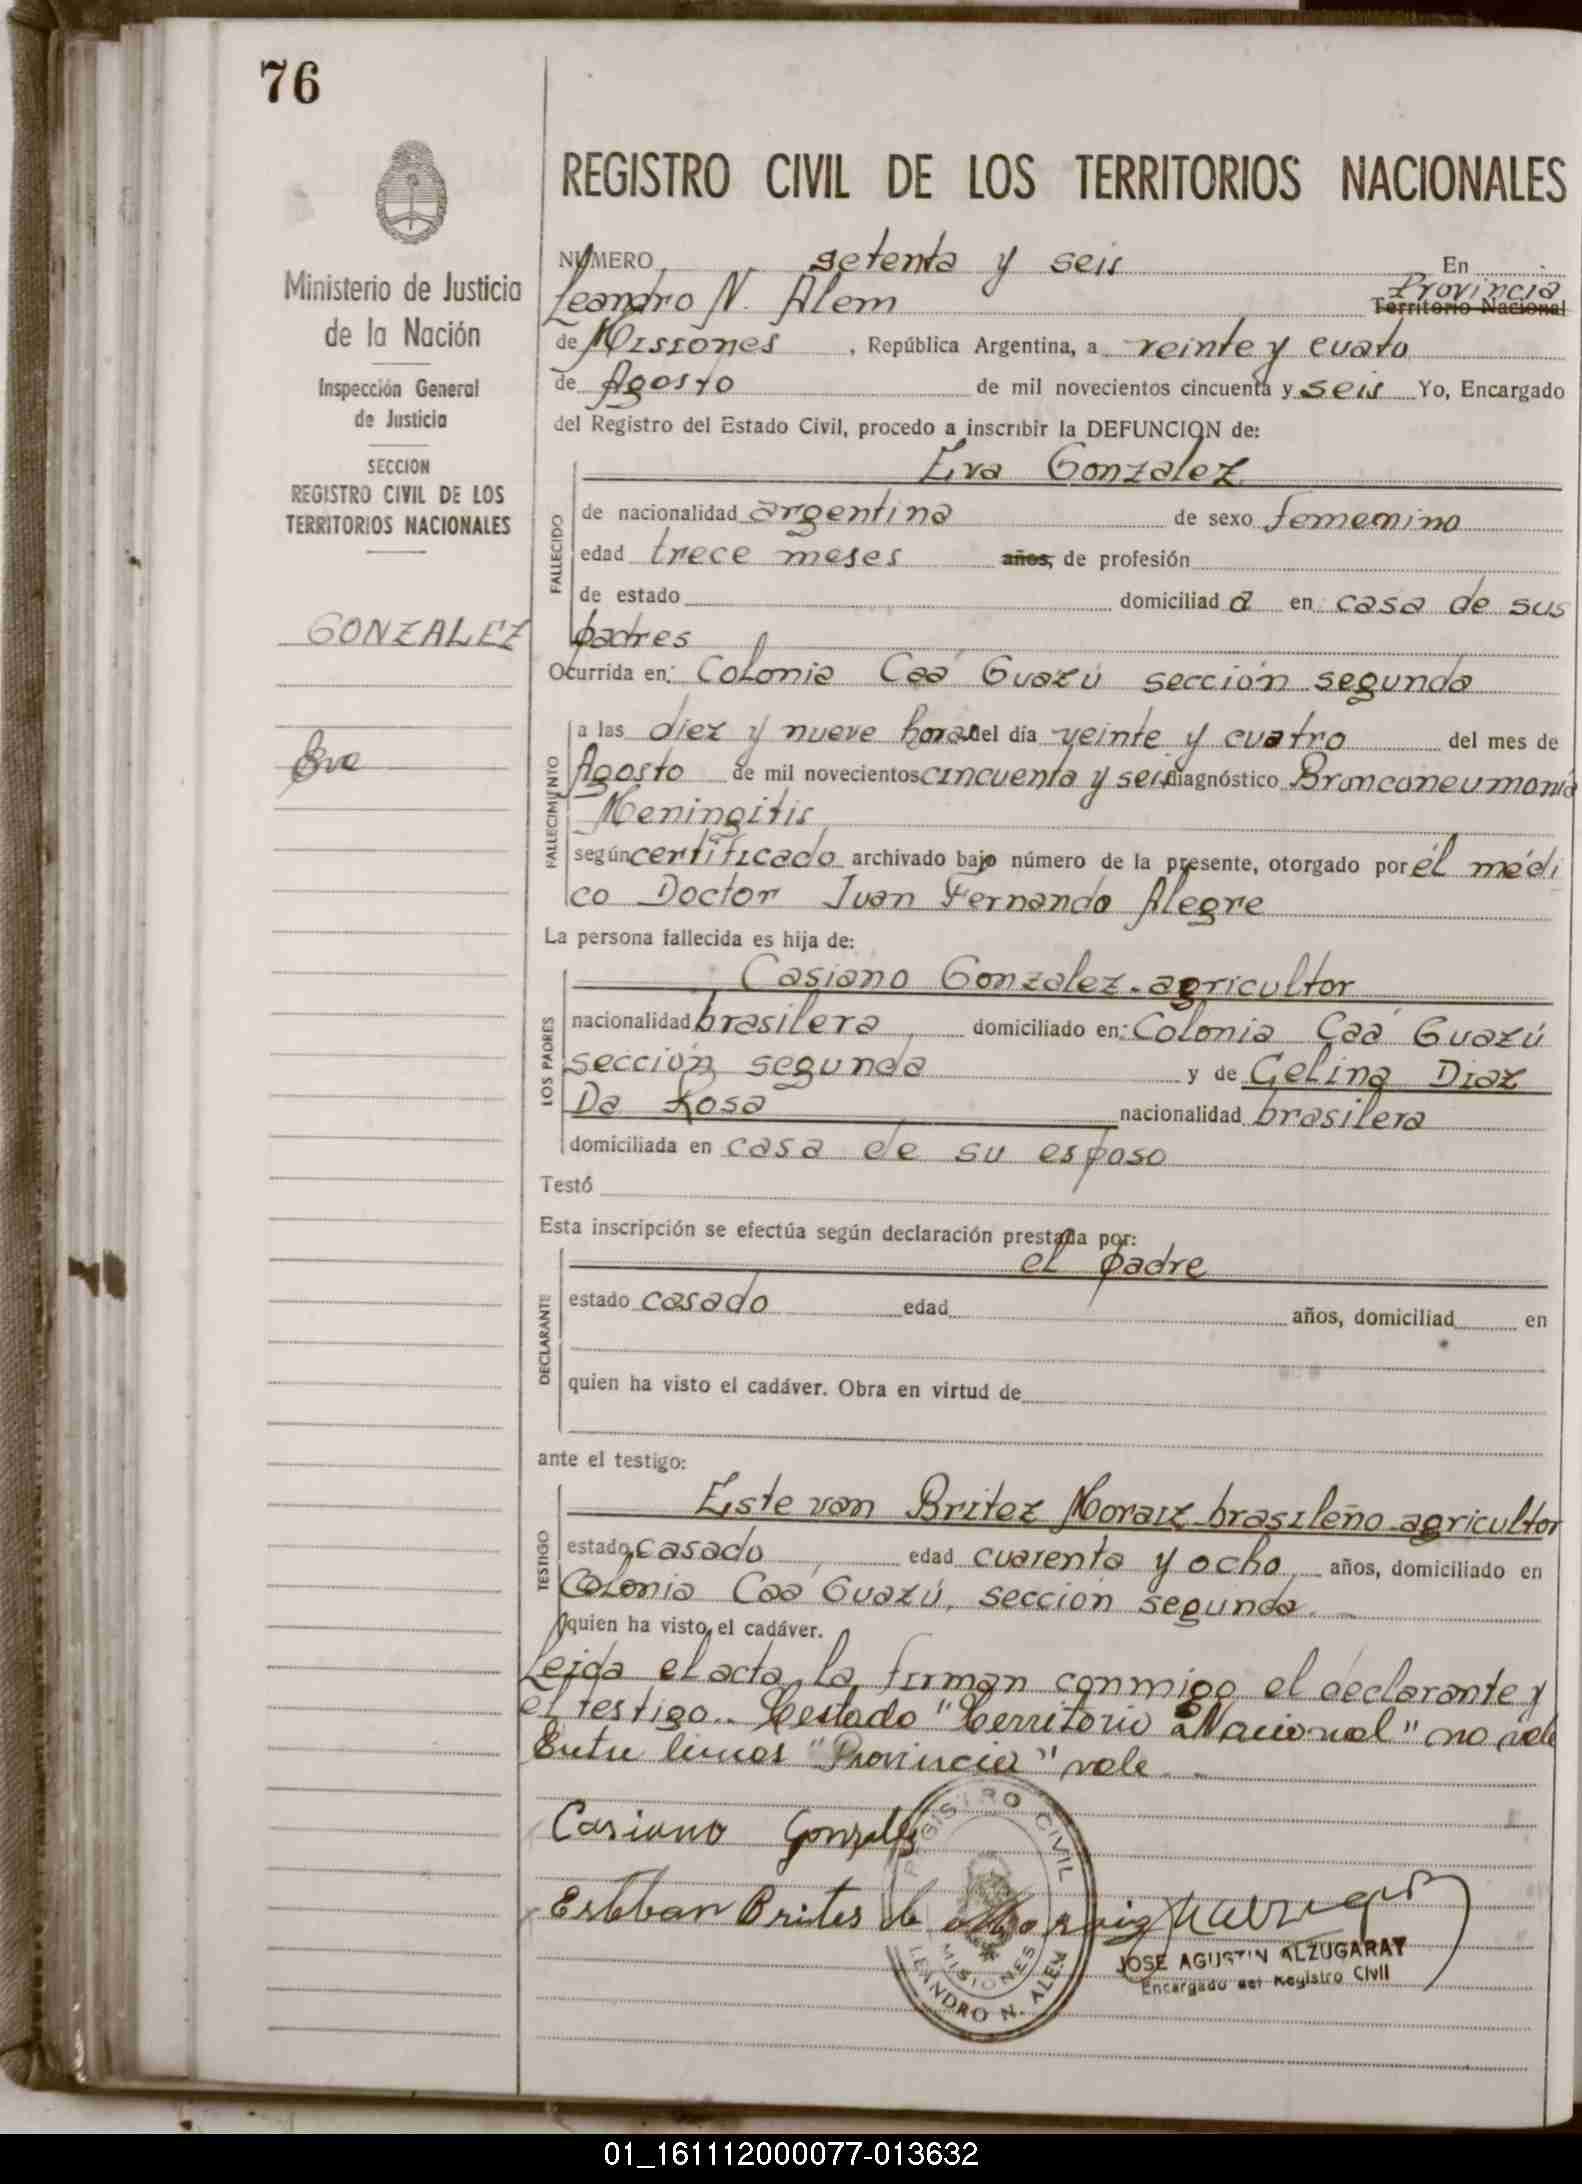 76
Ministerio de Justicia
de la Nación
Inspección General
de Justicia
SECCION
REGISTRO CIVIL DE LOS
TERRITORIOS NACIONALES
GONZALEZ
Eva
REGISTRO CIVIL DE LOS TERRITORIOS NACIONALES
NÚMERO setenta y seis En
Leandro N. Alem Provincia Territorio Nacional
de Misiones, República Argentina, a veinte y cuato
de Agosto de mil novecientos cincuenta y seis Yo, Encargado
del Registro del Estado Civil, procedo a inscribir la DEFUNCION de:
Eva Gonzalez
FALLECIDO
de nacionalidad argentina de sexo fememino
edad trece meses años, de profesión
de estado domiciliad a en casa de sus
padres
Ocurrida en: Colonia Caá Guazú sección segunda
FALLECIMIENTO
a las diez y nueve horas del día veinte y cuatro del mes de
Agosto de mil novecientos cincuenta y seis diagnóstico Bronconeumonia
Meningitis
según certificado archivado bajo número de la presente, otorgado por él médi
co Doctor Juan Fernando Alegre
La persona fallecida es hija de:
LOS PADRES
Casiano Gonzalez - agricultor
nacionalidad brasilera domiciliado en: Colonia Caá Guazú
sección segunda y de Celina Diaz
Da Rosa nacionalidad brasilera
domiciliada en casa de su esposo
Testó
Esta inscripción se efectúa según declaración prestada por:
el padre
DECLARANTE
estado casado edad años, domiciliad en
quien ha visto el cadáver. Obra en virtud de
ante el testigo:
TESTIGO
Estevan Britez Moraiz - brasileño - agricultor
estado casado edad cuarenta y ocho años, domiciliado en
Colonia Caá Guazú, sección segunda.
quien ha visto el cadáver.
Leida el acta, la firman conmigo el declarante y
el testigo.. Testado "Territorio Nacional" no vale
Entre lineas "Provincia" vale.
Casiano Gonzalez
Esteban Brites de Moraiz
REGISTRO CIVIL
MISIONES
LEANDRO N. ALEM
JOSE AGUSTIN ALZUGARAY
Encargado del Registro Civil
01_161112000077-013632